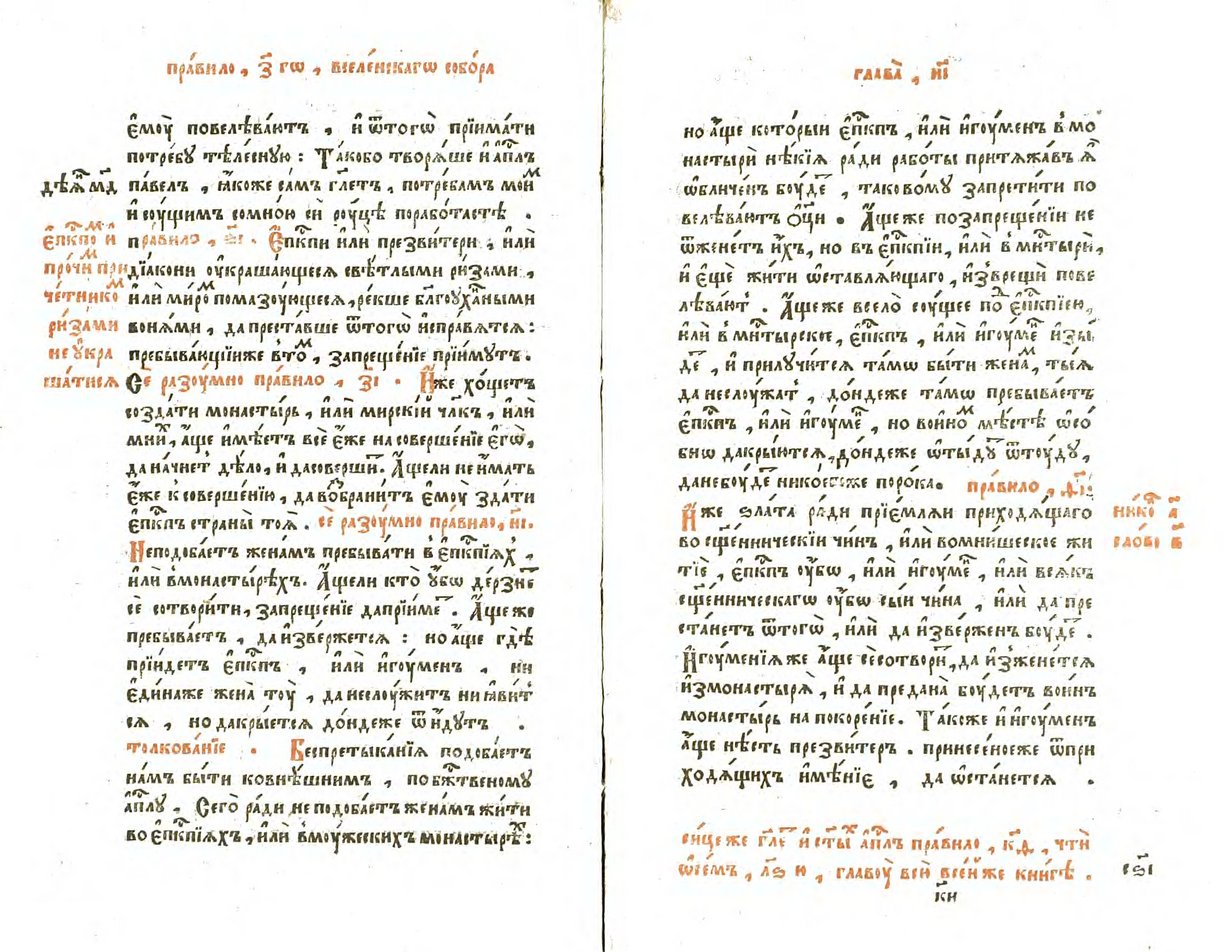 пра́вило , з҃ гѡ , вселе́нскагѡ собо́ра
є҆моу̀ повелѣва́ютъ , и҆ ѿтогѡ̀ прїима́ти
потре́бу тѣле́сную : Та́кобо творѧ́ше и҆ а҆п҃лъ
дѣѧ҃ м҃д
па́велъ , ꙗ҆́коже са́мъ гл҃етъ , потре́бамъ мои́ⷨ
и҆ су́щимъ сомно́ю сі́и ру́цѣ порабо́тастѣ .
є҆пⷭ҇кпоⷨ и҆
про́чиⷨ при
че́тникоⷨ
ри́зами
не ᲂу҆кра
ша́тисѧ
пра́вило , ѕ҃і . Є҆пⷭ҇кпи и҆лѝ презви́тери , и҆лѝ
дїа́кони ᲂу҆краша́ющеесѧ свѣ́тлыми ри́зами ,
и҆лѝ ми́роⷨ пома́зоующеесѧ , ре́кше бл҃гоуха́ными
воня́ми , да преста́вше ѿтогѡ̀ и҆спра́вѧтсѧ :
пребыва́ющїиже вто́ⷨ , запреще́нїе прїи́мутъ .
Сѐ разоу́мно пра́вило , з҃і . И҆́же хо́щетъ
созда́ти монасты́рь , и҆лѝ мирскі́й чл҃къ , и҆лѝ
мни́ⷯ , а҆́ще и҆мѣ́етъ всѐ є҆́же на соверше́нїе є҆гѡ̀ ,
да начне́тъ дѣ́ло , и҆ дасоверши́тъ . А҆́щели не и҆́мать
є҆́же к соверше́нїю , да во́бранитъ є҆моу̀ зда́ти
є҆пⷭ҇кпъ страны̀ тоѧ̀ . сѐ разоу́мно пра́вило , и҃і .
Неподоба́етъ жена́мъ пребыва́ти в є҆пⷭ҇кпїѧⷯ ,
и҆лѝ вмонастырѣ́хъ . А҆́щели кто̀ ᲂу҆́бѡ де́рзнеⷮ
сѐ сотвори́ти , запреще́нїе даприи́меⷮ . А҆́щеже
пребыва́етъ , да и҆зве́ржетсѧ : но а҆́ще гдѣ̀
прїи́детъ є҆пⷭ҇кпъ , и҆лѝ и҆гоу́менъ , ни
є҆ди́наже жена̀ тоу̀ , да неслоу́житъ ни ꙗ҆ви́т
сѧ , но дакры́етсѧ до́ндеже ѿи́дутъ .
толкова́нїе . Беспретыка́нїѧ подоба́етъ
на́мъ бы́ти ковнѣ́шнимъ , по бж҃твеному
а҆п҃лу . Сего̀ ра́ди не подоба́етъ жена́мъ жи́ти
во є҆пⷭ҇кпїѧхъ , и҆лѝ вмоу́жескихъ монастырѣ́ⷯ :
глава̀ , и҃і
но а҆́ще кото́рыи є҆пⷭ҇кпъ , и҆лѝ и҆гоу́менъ в мо
настырѝ нѣ́кїѧ ра́ди рабо́ты притѧжа́въ ѧ҆̀
ѡ҆бличе́нъ боу́деⷮ , таково́му запрети́ти по
велѣва́ютъ ѻ҆ц҃ы . А҆́щеже позапреще́нїи не
ѿжене́тъ и҆́хъ , но въ є҆пⷭ҇кпїи , и҆лѝ в мн҃тырѝ ,
и҆ є҆щѐ жи́ти ѡ҆ставлѧ́ющаго , и҆зврещѝ пове
лѣва́ютъ . А҆́щеже село̀ су́щее поⷣ є҆пⷭ҇кпїею ,
и҆лѝ в мн҃тырское , є҆пⷭ҇кпъ , и҆лѝ и҆гоу́меⷩ и҆зы́
деⷮ , и҆ прилучи́тсѧ та́мѡ бы́ти жена́ⷨ , ты́ѧ
да неслоу́жатъ , до́ндеже та́мѡ пребыва́етъ
є҆пⷭ҇кпъ , и҆лѝ и҆гоу́меⷩ , но во и҆но́ⷨ мѣ́стѣ ѡ҆со́
бнѡ дакры́ютсѧ , до́ндеже ѿы́дуⷮ ѿтоу́ду ,
данебоу́деⷮ никоегоже поро́ка . пра́вило , д҃і .
ник̾о а҃
сло́во в҃
И҆́же зла́та ра́ди прїе́млѧи приходѧ́щаго
во сщ҃е́нническїи чи́нъ , и҆лѝ вомни́шеское жи
тїѐ , є҆пⷭ҇кпъ ᲂу҆́бѡ , и҆лѝ и҆гоу́меⷩ , и҆лѝ всѧ́къ
сщ҃е́нническагѡ ᲂу҆́бѡ сы́и чи́на , и҆лѝ да пре
ста́нетъ ѿтогѡ̀ , и҆лѝ да и҆зве́рженъ боу́деⷮ .
И҆гоу́менїѧже а҆́ще сѐсотвори́тъ , да и҆зжене́тсѧ
и҆змонастырѧ̀ , и҆ да предана̀ боу́детъ во и҆́нъ
монасты́рь на покоре́нїе . Та́коже и҆ и҆гоу́менъ
а҆́ще нѣ́сть презви́теръ . принесе́ноеже ѿпри
ходѧ́щихъ и҆мѣ́нїе , да ѡ҆ста́нетсѧ .
си́цеже гл҃еⷮ и҆ ст҃ы́ⷯ а҆п҃лъ пра́вило , к҃д , чтѝ
ѡ҆се́мъ , л҃ѕ ю , главоу̀ все́й все́йже кни́гѣ .
с҃ѕі
к҃и